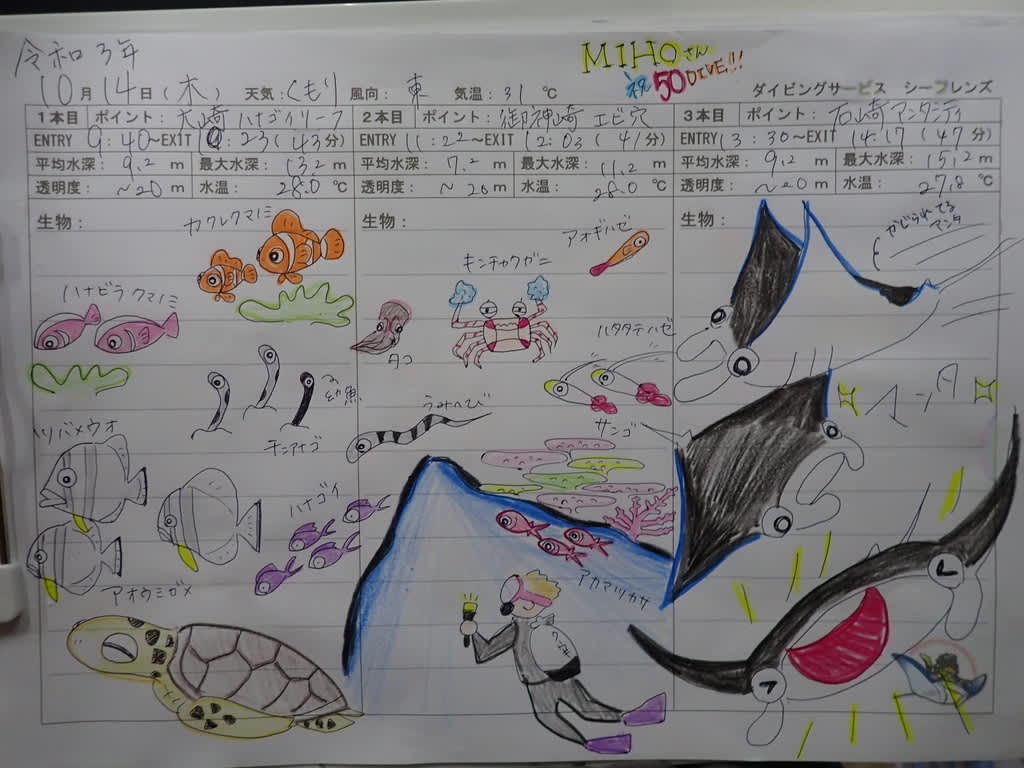 令和3年
MIHOさん
祝50DIVE!!!
10月14日(木) 天気:くもり 風向:東 気温:31℃
ダイビングサービス シーフレンズ
1本目 ポイント:大崎 ハナゴイリーフ
ENTRY 9:40~EXIT :23(43分)
平均水深: 9.2 m 最大水深: 13.2 m
透明度: ~20 m 水温: 28.0 ℃
生物:
カクレクマノミ
ハナビラクマノミ
幼魚
チンアナゴ
ツバメウオ
ハナゴイ
アオウミガメ
2本目 ポイント:御神崎 エビ穴
ENTRY 11:22~EXIT 12:03(41分)
平均水深: 7.2 m 最大水深: 11.2 m
透明度: ~20 m 水温: 28.0 ℃
生物:
アオギハゼ
キンチャクガニ
タコ
ハタタテハゼ
うみへび
サンゴ
アカマツカサ
3本目 ポイント:石崎 マンタシティ
ENTRY 13:30~EXIT 14:17(47分)
平均水深: 9.2 m 最大水深: 15.2 m
透明度: ~20 m 水温: 27.8 ℃
生物:
かじられてる
マンタ
マンタ